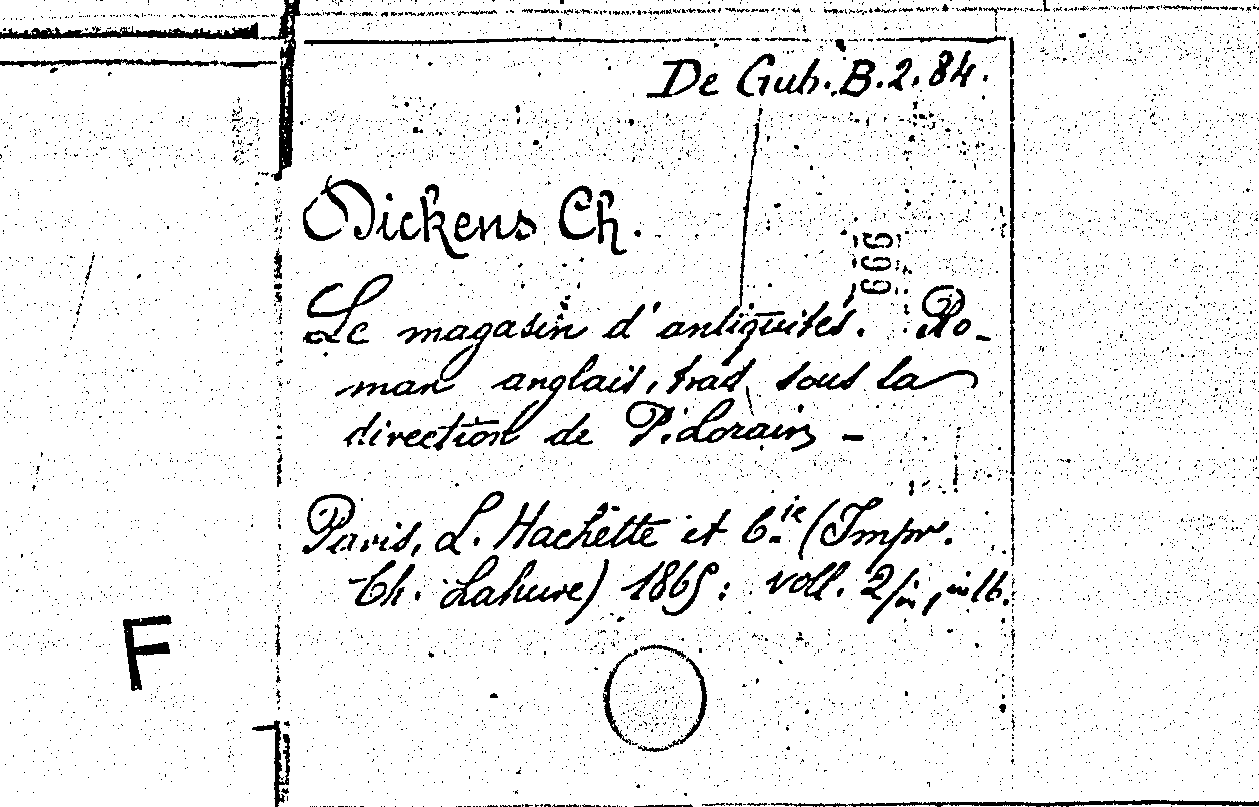 De Gub. B. 2. 84.
Dickens Ch.
666
Le magasin d'antiquités. Ro-
man anglais, trad. sous la
direction de P. Lorain -
Paris, L. Hachette et C.ie (Impr.
Ch. Lahure) 1865: voll. 2/in 1, in 16.
F